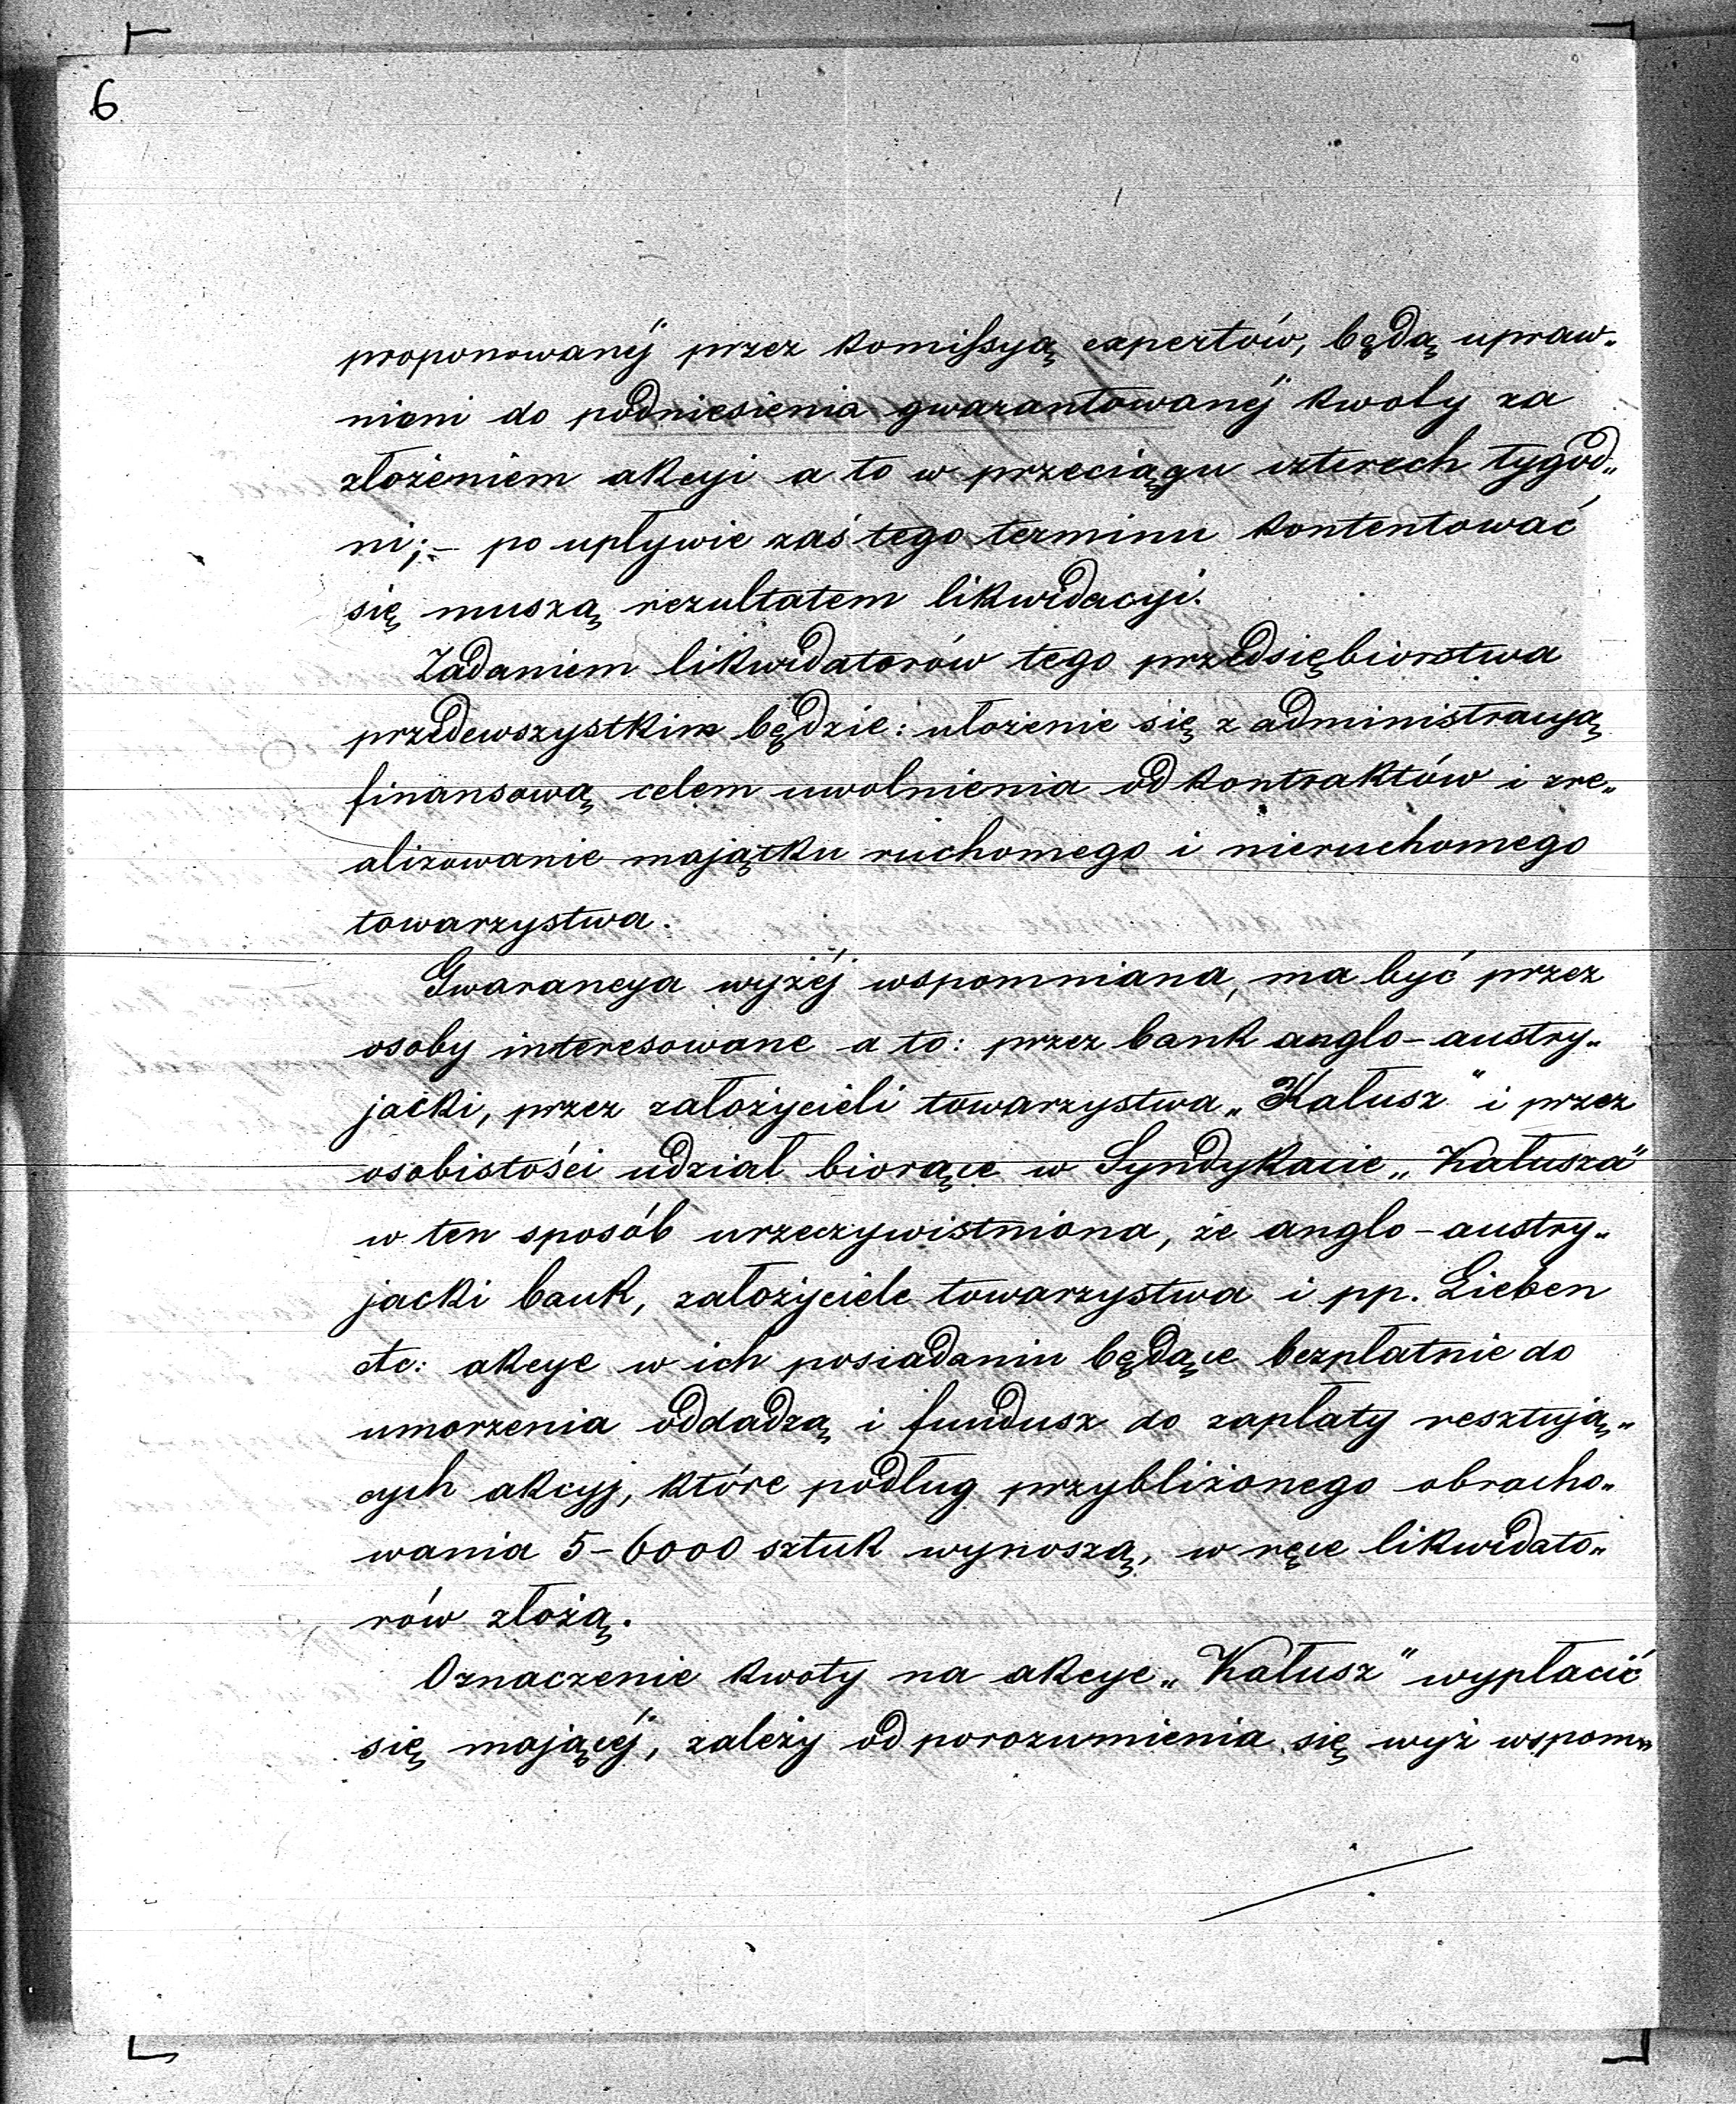 6
proponowanéj przez komissyą expertów, będą upraw„
nieni do podniesienia gwarantowanéj kwoty za
złożeniem akcyi a to w przeciągu czterech tygod„
ni; – po upływie zaś tego terminu kontentować
się muszą rezultatem likwidacyi.
Zadaniem likwidatorów tego przedsiębiorstwa
przedewszystkim będzie: ułożenie się z administracyą
finansową celem uwolnienia od kontraktów i zre„
alizowanie majątku ruchomego i nieruchomego
towarzystwa.
Gwarancya wyżéj wspomniana, ma być przez
osoby interesowane a to: przez bank anglo-austry„
jacki, przez założycieli towarzystwa „Kałusz" i przez
osobistości udział biorące w Syndykacie „Kałusza"
w ten sposób urzeczywistniona, że anglo-austry„
jacki bank, założyciele towarzystwa i pp. Lieben
etc: akcye w ich posiadaniu będące bezpłatnie do
umorzenia oddadzą i fundusz do zapłaty resztują„
cych akcyj, które podług przybliżonego obracho„
wania 5-6000 sztuk wynoszą, w ręce likwidato„
rów złożą.
Oznaczenie kwoty na akcye „Kałusz" wypłacić
się mającéj, zależy od porozumienia się wyż wspom„